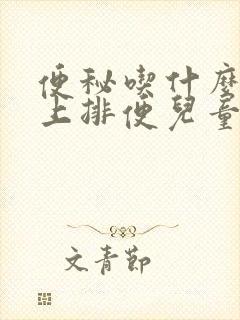 便秘喫什麼
上排便兒童
文青節